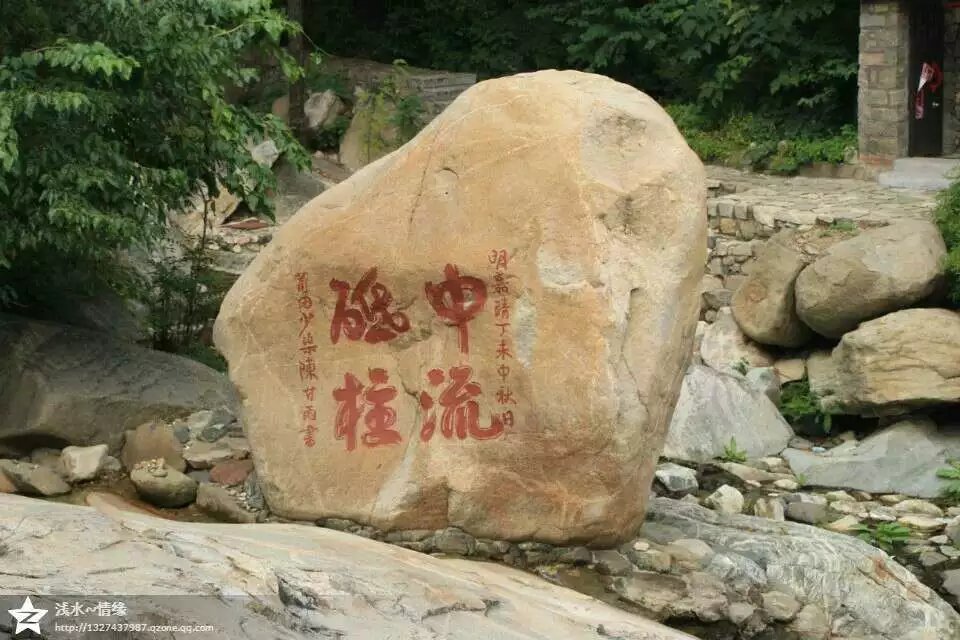 明嘉靖丁未中秋日
中流
砥柱
莆田少渠陳甘雨書
浅水~情缘
http://1327437987.qzone.qq.com